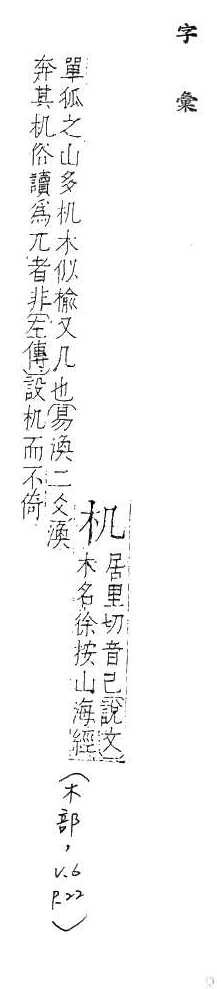 字彙
机
居里切音己說文
木名徐按山海經
單狐之山多机木似榆又几也易渙二爻渙
奔其机俗讀爲兀者非左傳設机而不倚
(木部，v.6 P.22)